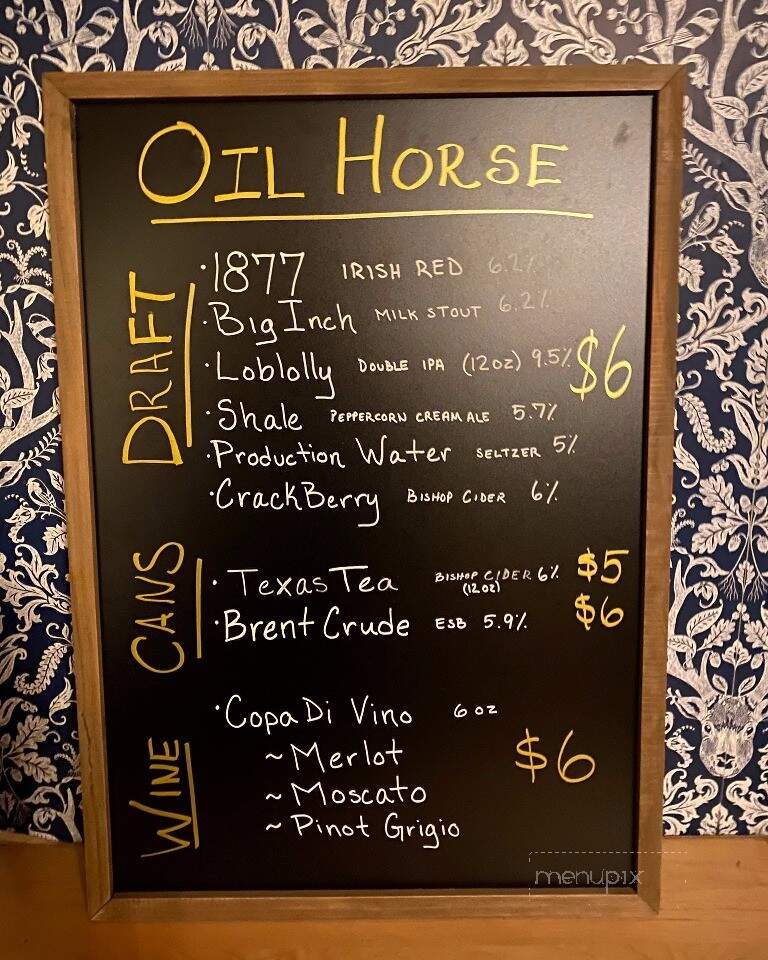 OIL HORSE
DRAFT
·1877 IRISH RED 6.2%
·Big Inch MILK STOUT 6.2%
·Loblolly DOUBLE IPA (12oz) 9.5% $6
·Shale PEPPERCORN CREAM ALE 5.7%
·Production Water SELTZER 5%
·CrackBerry BISHOP CIDER 6%
CANS
·Texas Tea BISHOP CIDER 6% $5
(12oz)
·Brent Crude ESB 5.9% $6
WINE
·Copa Di Vino 6 oz
~Merlot $6
~Moscato
~Pinot Grigio
menupix